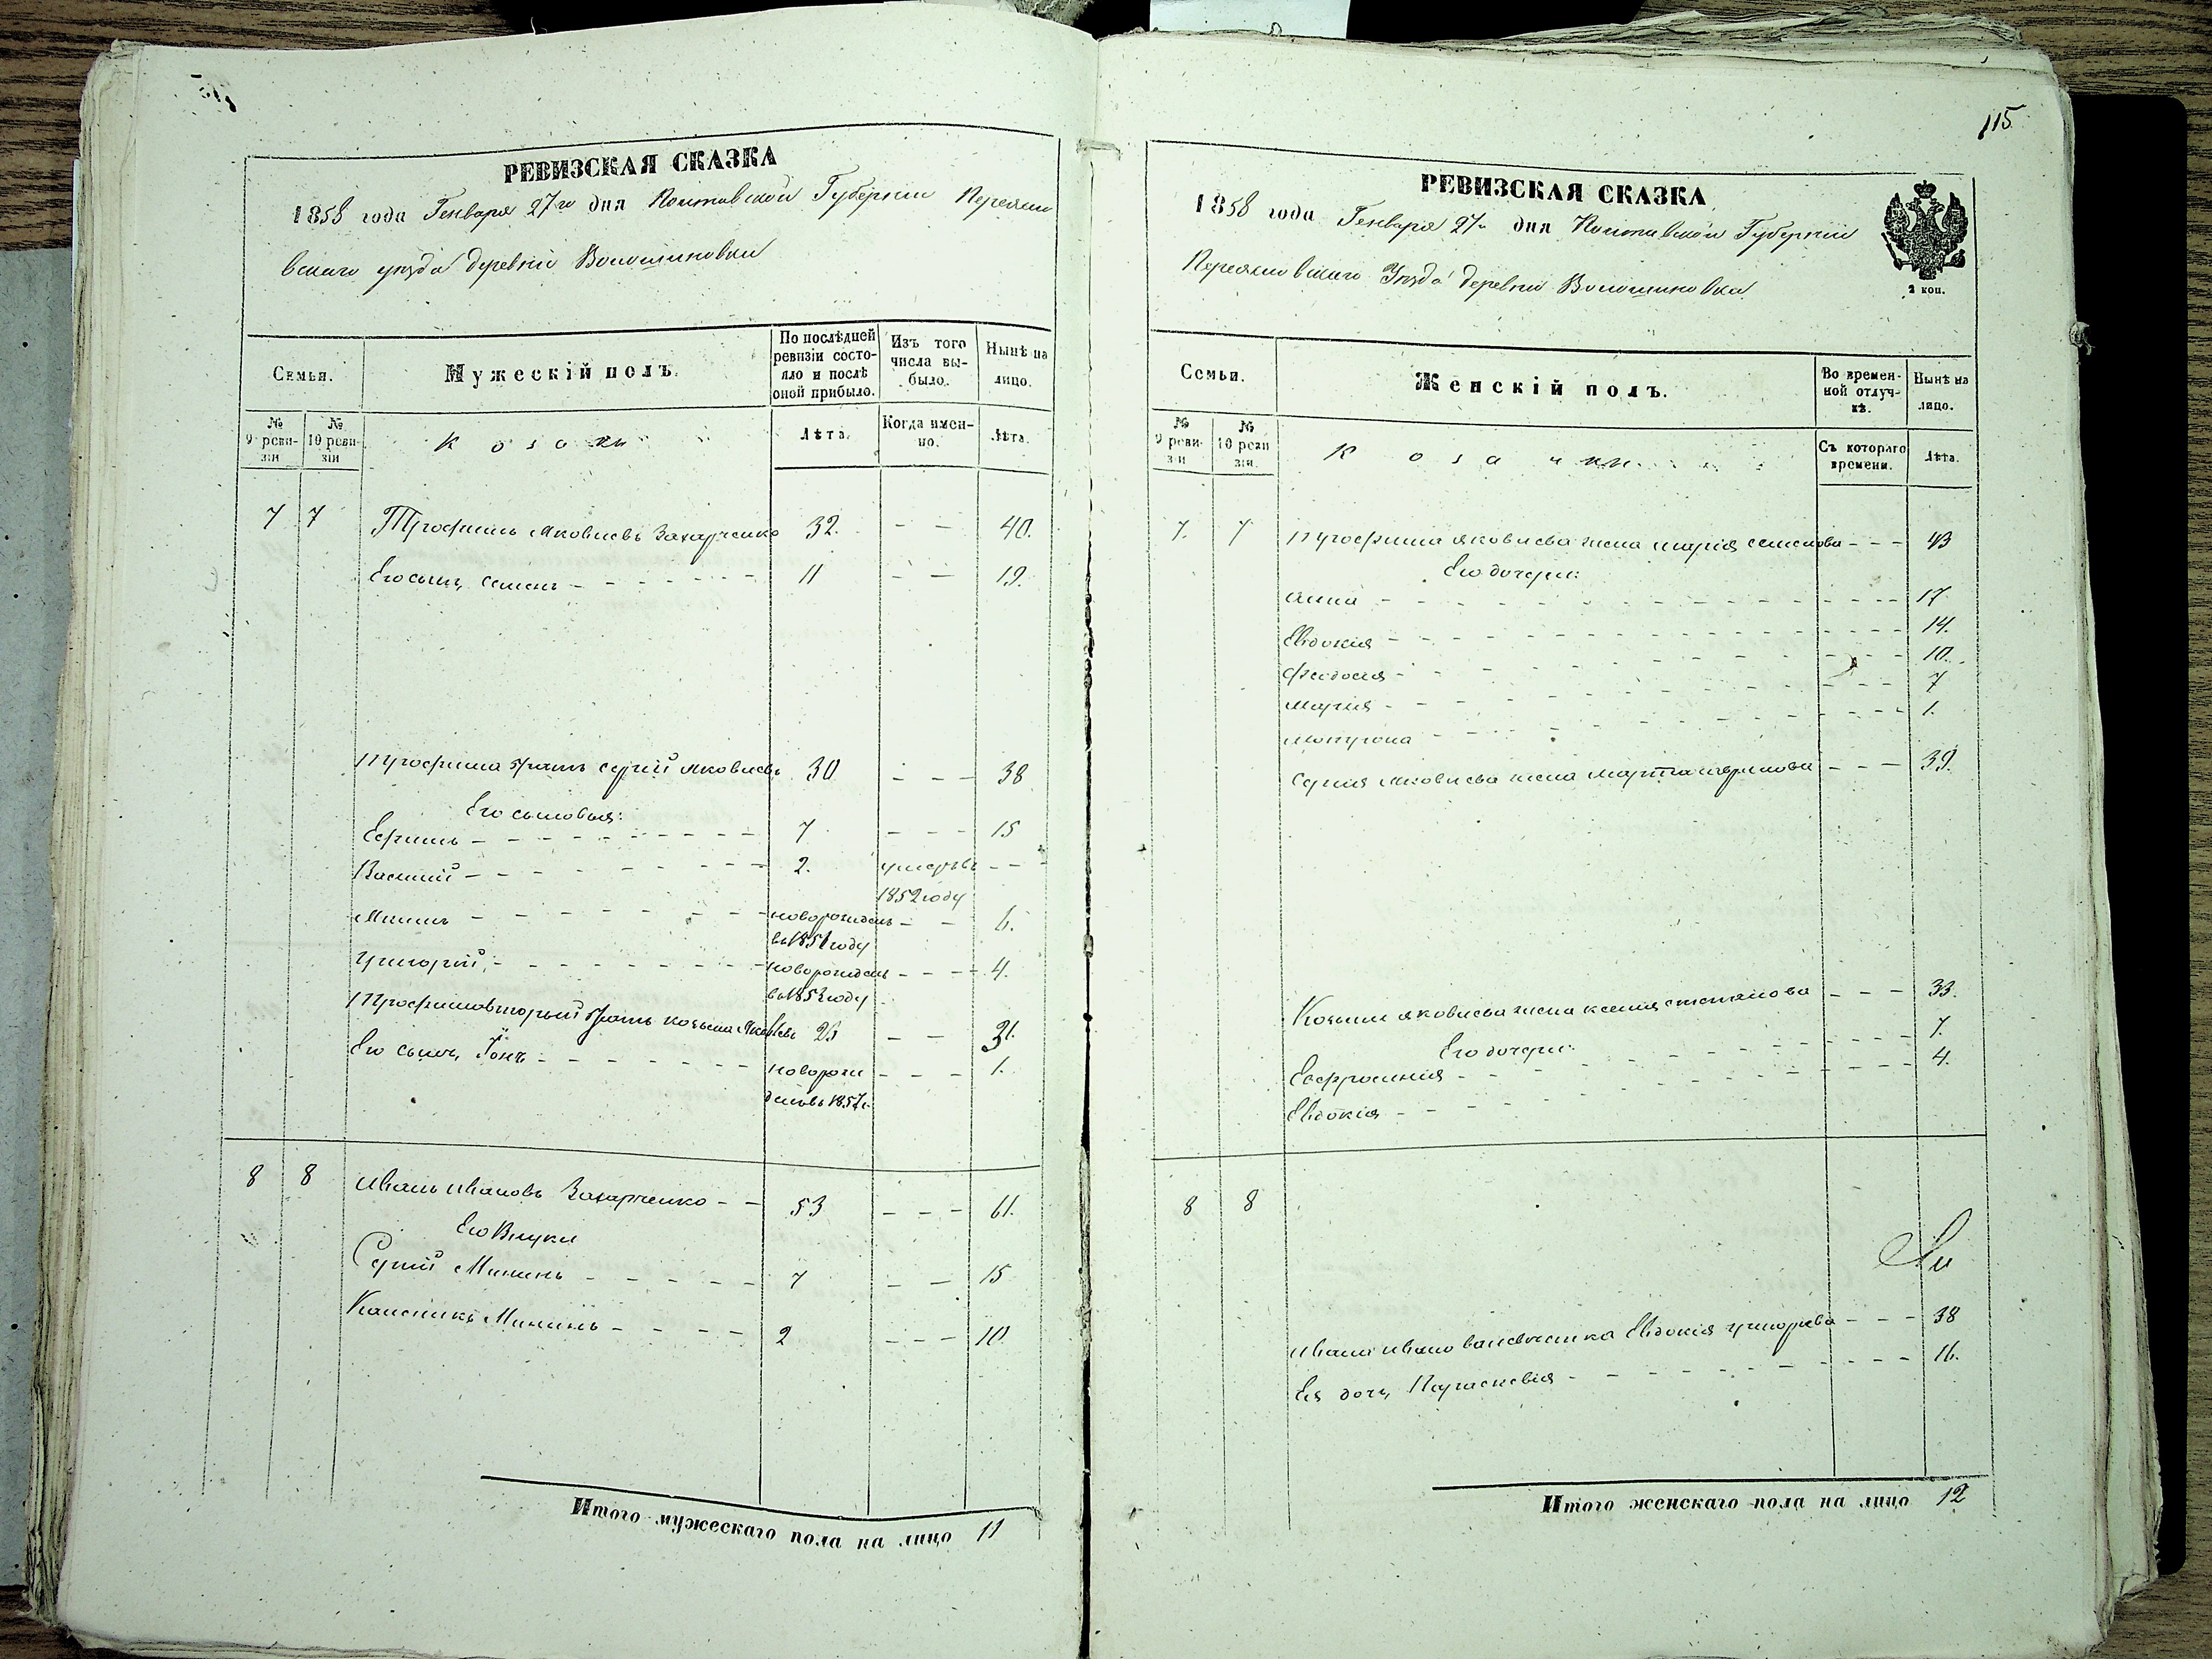 РЕВИЗСКАЯ СКАЗКА
1858 года Генваря 27го дня Полтавской Губернии Переясла
вскаго уезда деревни Волошиновки
Семьи.
Мужескій полъ.
По послѣдней ревизіи состояло и послѣ оной прибыло.
Изъ того числа выбыло.
Нынѣ на лицо.
№ 9 ревизіи
№ 10 ревизіи
Козаки
Лѣта.
Когда именно.
Лѣта.
7 7 Трофимъ Яковлевъ Захарченко 32. — — 40.
Его сынъ, Семенъ 11 — — 19.
Трофима братъ Сергій Яковлевъ 30 — — — 38
Его сыновья:
Ефимъ 7 — — — 15
Василий 2. умеръ въ
1852 году
новорожденъ — — 6.
въ 1851 году
Григорий новорожденъ — — — 4.
въ 1853 году
Трофима вторый братъ Козьма Яковлевъ 23 — — 31.
Его сынъ, Іонъ новорож — — — 1.
денъ въ 1857 г.
8 8 Иванъ Ивановъ Захарченко 53 — — — 61.
Его Внуки
Сергій Мининъ 7 — — 15
Калиникъ Мининъ 2 — — — 10.
Итого мужескаго пола на лицо 11
115
РЕВИЗСКАЯ СКАЗКА
1858 года Генваря 27го дня Полтавской Губернии
Переяславскаго Уезда деревни Волошиновка
2 коп.
Семьи.
Женскій полъ.
Во временной отлучкѣ.
Нынѣ на лицо.
№ 9 ревизіи
№ 10 ревизіи
Козачки
Съ котораго времени.
Лѣта.
7. 7 Трофима Яковлева жена Марія Семенова — — — 43
Его дочери:
Анна 17
Евдокія 14.
Феодосія 10.
Марія 7
Мотрона 1.
Сергія Яковлева жена Марта — — — 39.
Козьми Яковлева жена Ксенія Степанова — — — 33.
Его дочери:
Евфросинія 7.
Евдокія 4.
8 8
Ивана Иванова невѣстка Евдокія Григорьева — — — 38
Ея дочь, Параскевія 16.
Итого женскаго пола на лицо 12